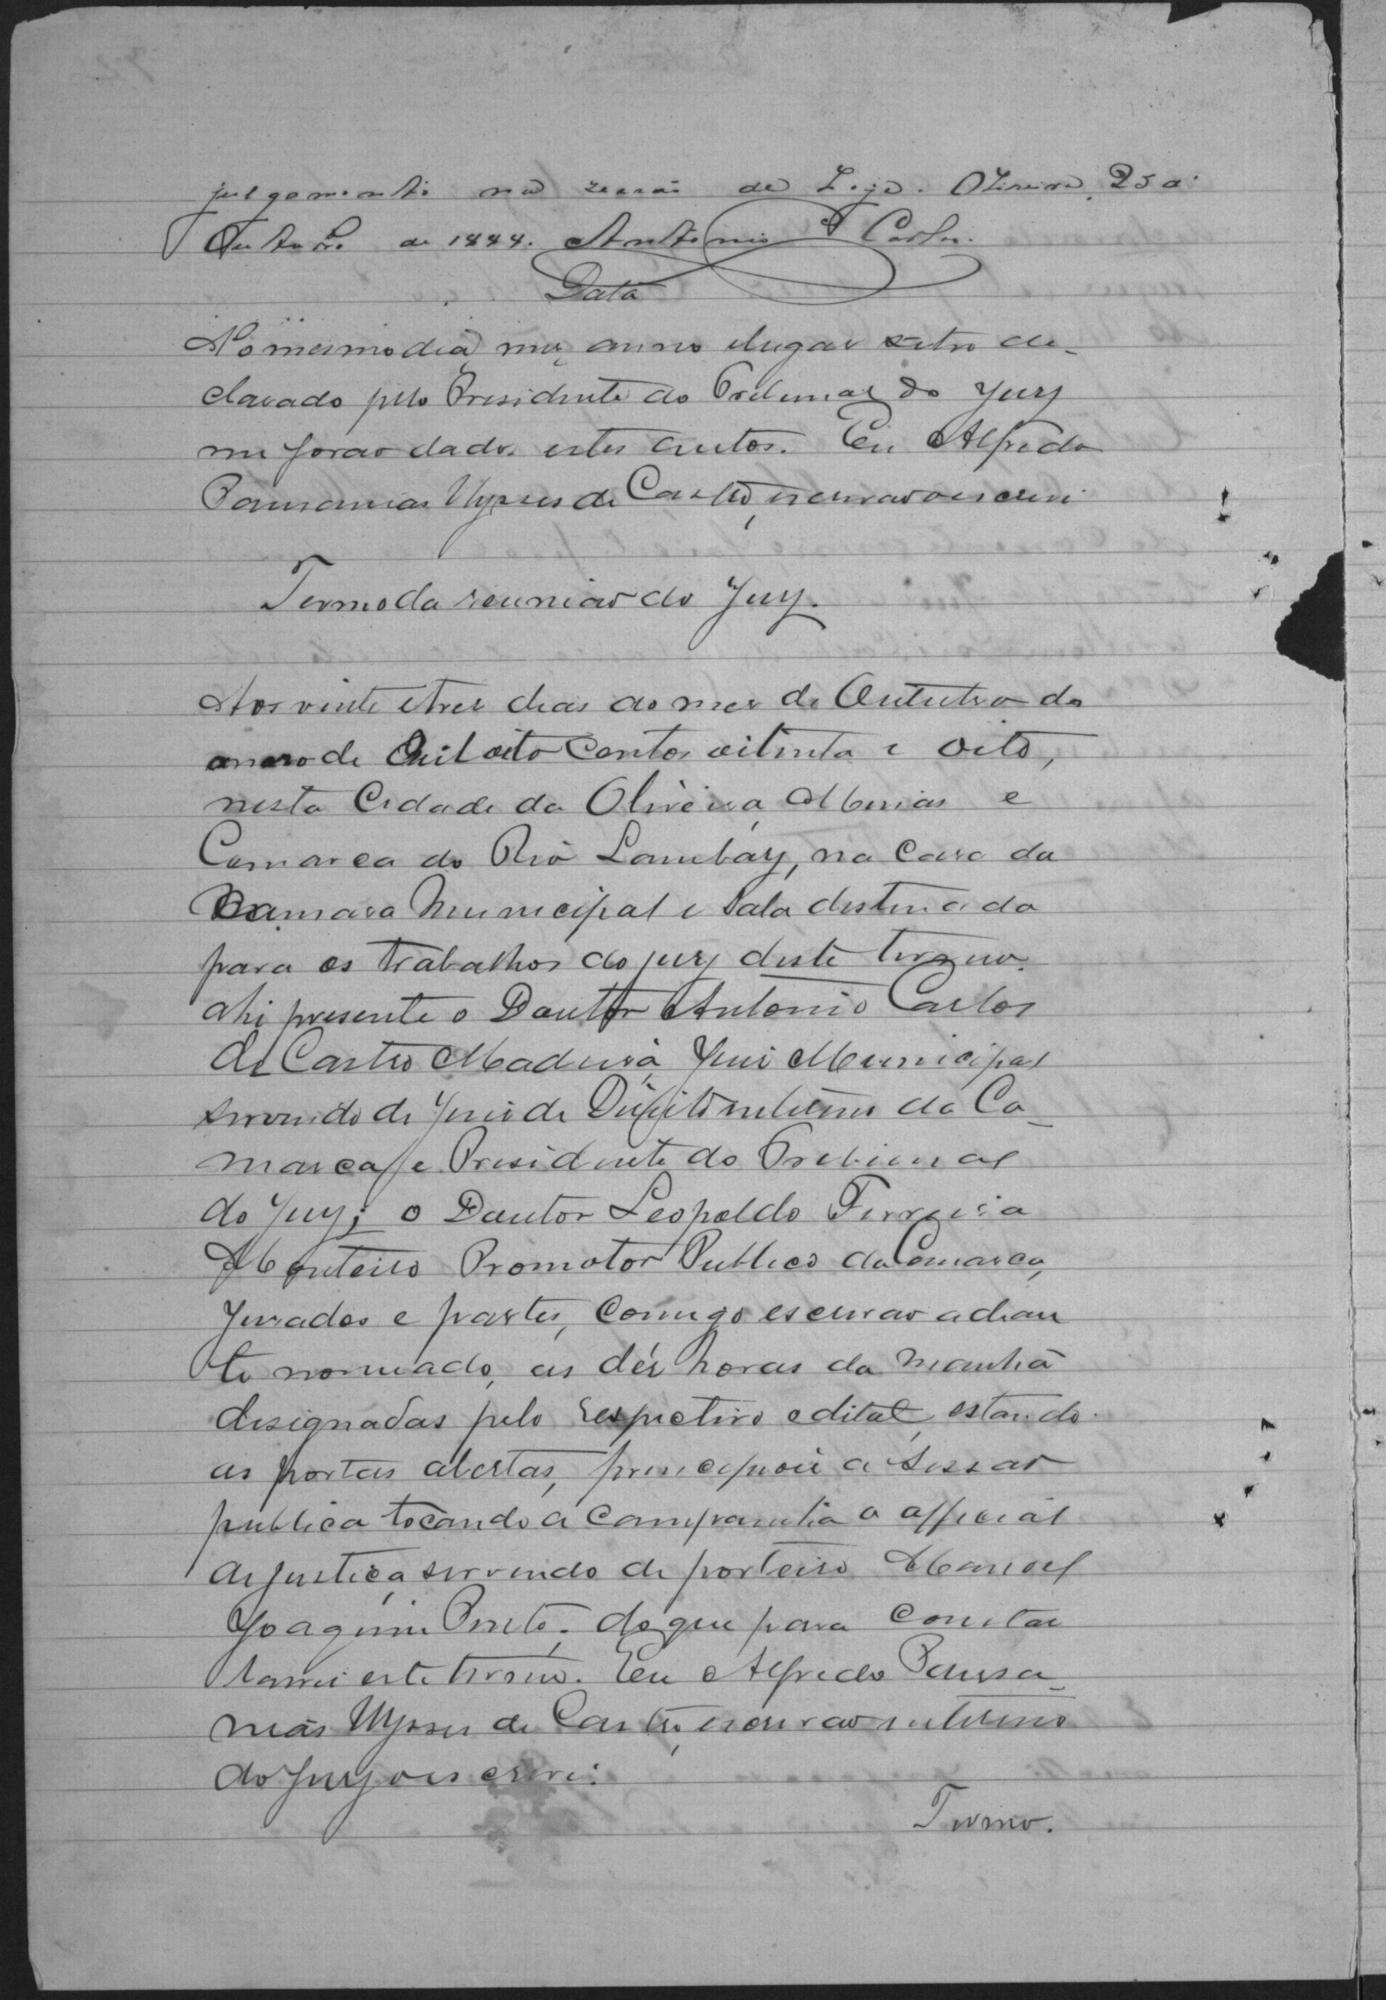 julgamento na sessão de hoje. Oliveira, 23 de
Outubro de 1888. Antonio Carlos.
Data
No mesmo dia, mez, anno e lugar retro de-
clarado pelo Presidente do Tribunal do Jury
me forão dados estes autos. Eu Alfredo
Pausanias Ulysses de Castro, escrivão o escrevi
Termo da reunião do Jury.
Aos vinte e tres dias do mez de Outubro do
anno de mil oito centos oitenta e oito,
nesta Cidade da Oliveira, Minas e
Comarca do Rio Lambary, na casa da
Camara Municipal e sala destinada
para os trabalhos do jury deste termo.
ahi presente o Doutor Antonio Carlos
de Castro Madeira, Juiz Municipal
servindo de Juiz de Direito interino da Co-
marca, e Presidente do Tribunal
do Jury; o Doutor Leopoldo Ferreira
Monteiro Promotor Publico da Comarca,
Jurados e partes, comigo escrivão adian
te nomeado, as déz horas da manhã
designadas pelo respectivo edital, estando
as portas abertas, principiou a sessão
publica tocando a campainha o official
de justiça servindo de porteiro Manoel
Joaquim Preto. do que para constar
lavrei este termo. Eu Alfredo Pausa-
nias Ulysses de Castro, escrivão interino
do Jury o escrevi.
Termo.